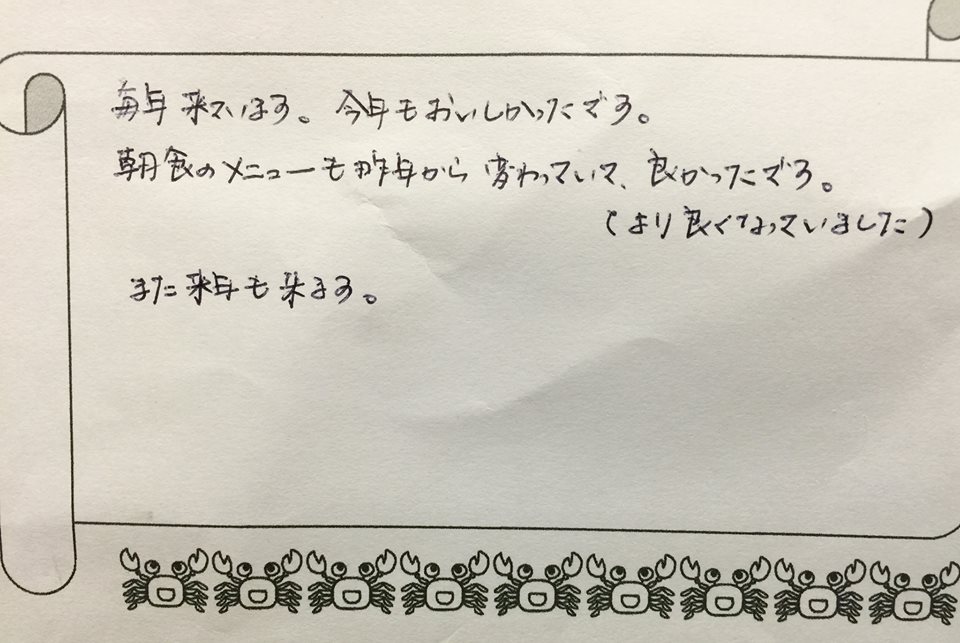 毎年来ています。今年もおいしかったです。
朝食のメニューも昨年から変わっていて、良かったです。
(より良くなっていました)
また来年も来ます。